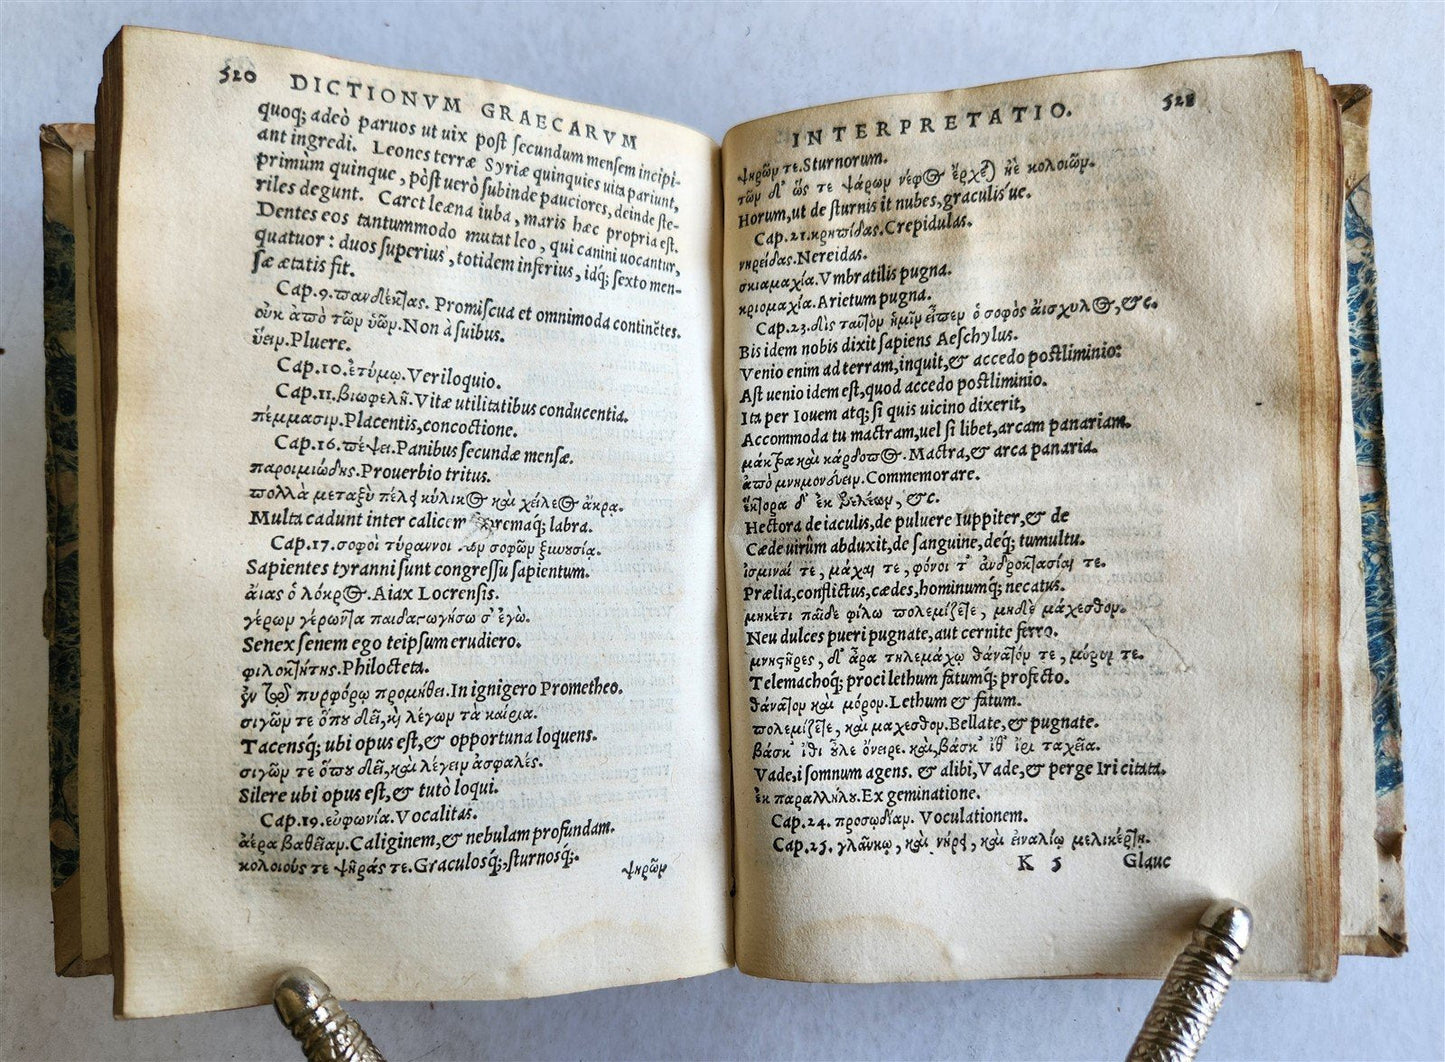 520 DICTIONVM GRAECARVM
quoq; adeò paruos ut uix post secundum mensem incipi-
ant ingredi. Leones terræ Syriæ quinquies uita pariunt,
primum quinque, pòst uerò subinde pauciores, deinde ste-
riles degunt. Caret leæna iuba, maris hæc propria est.
Dentes eos tantummodo mutat leo, qui canini uocantur,
quatuor: duos superius, totidem inferius, idq; sexto men-
sæ ætatis fit.
Cap.9. πανδέκτας. Promiscua et omnimoda continẽtes.
οὐκ ἀπὸ τῶν ὑῶν. Non à suibus.
ὕειν. Pluere.
Cap.10. ἐτύμῳ. Veriloquio.
Cap.11. βιωφελῆ. Vitæ utilitatibus conducentia.
πέμμασιν. Placentis, concoctione.
Cap.16. πέψει. Panibus secundæ mensæ.
παροιμιώδης. Prouerbio tritus.
πολλὰ μεταξὺ πέλει κύλικος καὶ χείλεος ἄκρα.
Multa cadunt inter calicem supremaq; labra.
Cap.17. σοφοὶ τύραννοι τῶν σοφῶν ξυνουσίᾳ.
Sapientes tyranni sunt congressu sapientum.
αἴας ὁ λόκρος. Aiax Locrensis.
γέρων γέροντα παιδαγωγήσω σ' ἐγώ.
Senex senem ego teipsum erudiero.
φιλοκτήτης. Philocteta.
ἐν τῷ πυρφόρῳ προμηθεῖ. In ignigero Prometheo.
σιγῶν τε ὅπου δεῖ, καὶ λέγων τὰ καίρια.
Tacensq; ubi opus est, & opportuna loquens.
σιγᾶν τε ὅπου δεῖ, καὶ λέγειν ἀσφαλές.
Silere ubi opus est, & tutò loqui.
Cap.19. εὐφωνία. Vocalitas.
ἀέρα βαθεῖαν. Caliginem, & nebulam profundam.
κολοιούς τε ψῆράς τε. Graculosq́;, sturnosq́;.
ψηρῶν
INTERPRETATIO. 521
ψηρῶν τε. Sturnorum.
τῶν δ' ὥς τε ψάρων νέφος ἔρχεται ἠὲ κολοιῶν.
Horum, ut de sturnis it nubes, graculis ue.
Cap.21. κρηπίδας. Crepidulas.
νηρεΐδας. Nereidas.
σκιαμαχία. Vmbratilis pugna.
κριομαχία. Arietum pugna.
Cap.23. δὶς ταὐτὸν ἡμῖν εἶπεν ὁ σοφὸς αἴσχυλος, &c.
Bis idem nobis dixit sapiens Aeschylus.
Venio enim ad terram, inquit, & accedo postliminio:
Ast uenio idem est, quod accedo postliminio.
Ita per Iouem atq; si quis uicino dixerit,
Accommoda tu mactram, uel si libet, arcam panariam.
μάκτρα καὶ κάρδοπος. Mactra, & arca panaria.
ἀπὸ μνημονεύειν. Commemorare.
ἕκτορα δ' ἐκ βελέων, &c.
Hectora de iaculis, de puluere Iuppiter, & de
Cæde uirûm abduxit, de sanguine, deq; tumultu.
ὑσμῖναί τε, μάχαι τε, φόνοι τ' ἀνδροκτασίαι τε.
Prælia, conflictus, cædes, hominumq́; necatus.
μηκέτι παῖδε φίλω πολεμίζετε, μηδὲ μάχεσθον.
Neu dulces pueri pugnate, aut cernite ferro.
μνηστῆρες, δ' ἄρα τηλεμάχῳ θάνατόν τε, μόρον τε.
Telemachoq; proci lethum fatumq́; profecto.
θάνατον καὶ μόρον. Lethum & fatum.
πολεμίζετε, καὶ μαχεσθον. Bellate, & pugnate.
βάσκ' ἴθι οὖλε ὄνειρε. καὶ, βάσκ' ἴθ' ἶρι ταχεῖα.
Vade, i somnum agens. & alibi, Vade, & perge Iri citata.
ἐκ παραλλήλου. Ex geminatione.
Cap.24. προσῳδίαν. Voculationem.
Cap.25. γλαύκῳ, καὶ νηρεῖ, καὶ εἰναλίῳ μελικέρτῃ.
K 5 Glauc